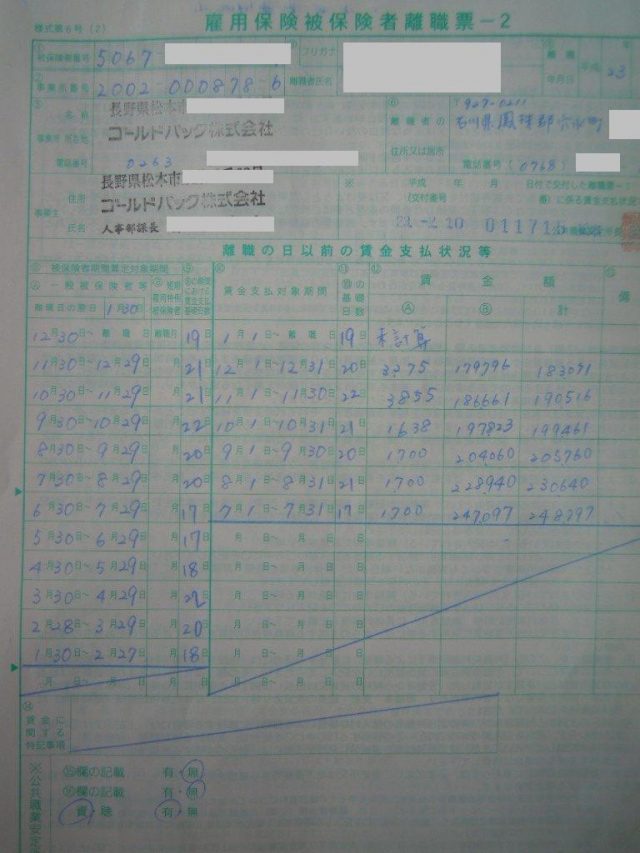 様式第6号(2)
雇用保険被保険者離職票-2
① 被保険者番号 5067
③ フリガナ
④ 離職年月日 平成 23 年
② 事業所番号 2002-000878-6
離職者氏名
⑤
名称
長野県松本市
ゴールドパック株式会社
事業所 所在地
電話番号 0263
⑥ 離職者の
住所又は居所
〒927-0211
石川県鳳珠郡穴水町
電話番号 (0768)
住所
長野県松本市
ゴールドパック株式会社
事業主
氏名 人事部課長
※ 平成 年 月 日付で交付した離職票-
(交付番号
に係る賃金支払状況
011715
離職の日以前の賃金支払状況等
⑧ 被保険者期間算定対象期間
Ⓐ 一般被保険者等
離職日の翌日 1月30日
⑩ 賃金支払対象期間
⑪ ⑩の基礎日数
⑫ 賃金額
Ⓐ Ⓑ 計
⑬ 備
12月30日~離職日 離職月 19日 1月1日~離職日 19日 未計算
11月30日~12月29日 月 21日 12月1日~12月31日 20日 3275 179796 183071
10月30日~11月29日 月 21日 11月1日~11月30日 22日 3855 186661 190516
9月30日~10月29日 月 22日 10月1日~10月31日 21日 1638 197823 199461
8月30日~9月29日 月 20日 9月1日~9月30日 20日 1700 204060 205760
7月30日~8月29日 月 20日 8月1日~8月31日 21日 1700 228940 230640
6月30日~7月29日 月 17日 7月1日~7月31日 17日 1700 247097 248797
5月30日~6月29日 月 17日 月 日~ 月 日 日
4月30日~5月29日 月 18日 月 日~ 月 日 日
3月30日~4月29日 月 22日 月 日~ 月 日 日
2月28日~3月29日 月 20日 月 日~ 月 日 日
1月30日~2月27日 月 18日 月 日~ 月 日 日
月 日~ 月 日 月 日 月 日~ 月 日 日
⑭ 賃金に関する特記事項
※公共職業安定
⑮欄の記載 有・無
⑯欄の記載 有・無
資・聴 有・無